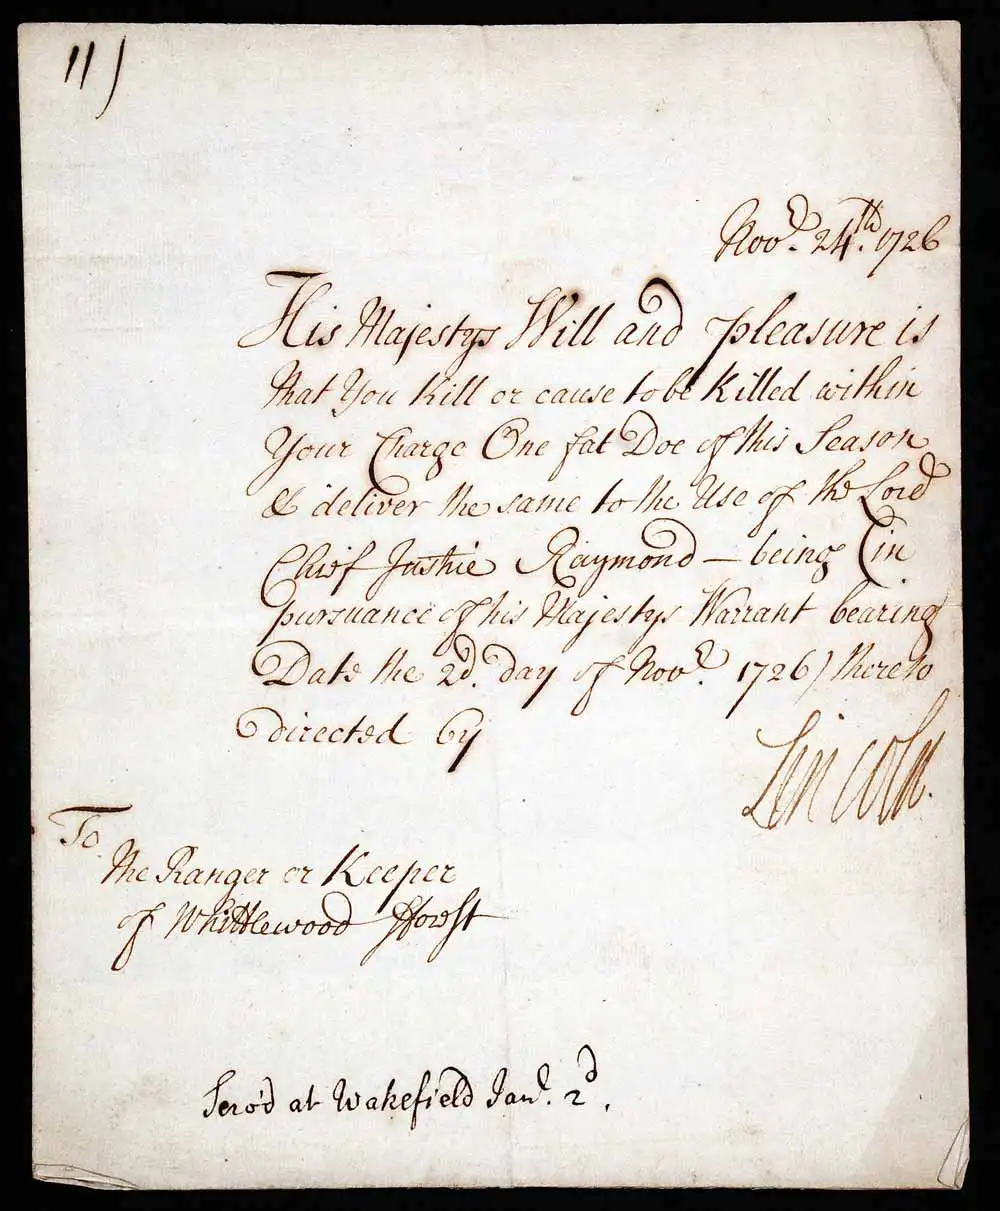 11)
Novr. 24th. 1726
His Majestys Will and pleasure is
that You Kill or cause to be Killed within
Your Charge One fat Doe of this Season
& deliver the same to the Use of the Lord
Chief Justice Raymond — being (in
pursuance of his Majestys Warrant bearing
Date the 2d. day of Novr. 1726) thereto
directed by
Lincoln.
To
the Ranger or Keeper
of Whittlewood fforest
Serv'd at Wakefield Jany. 2d.